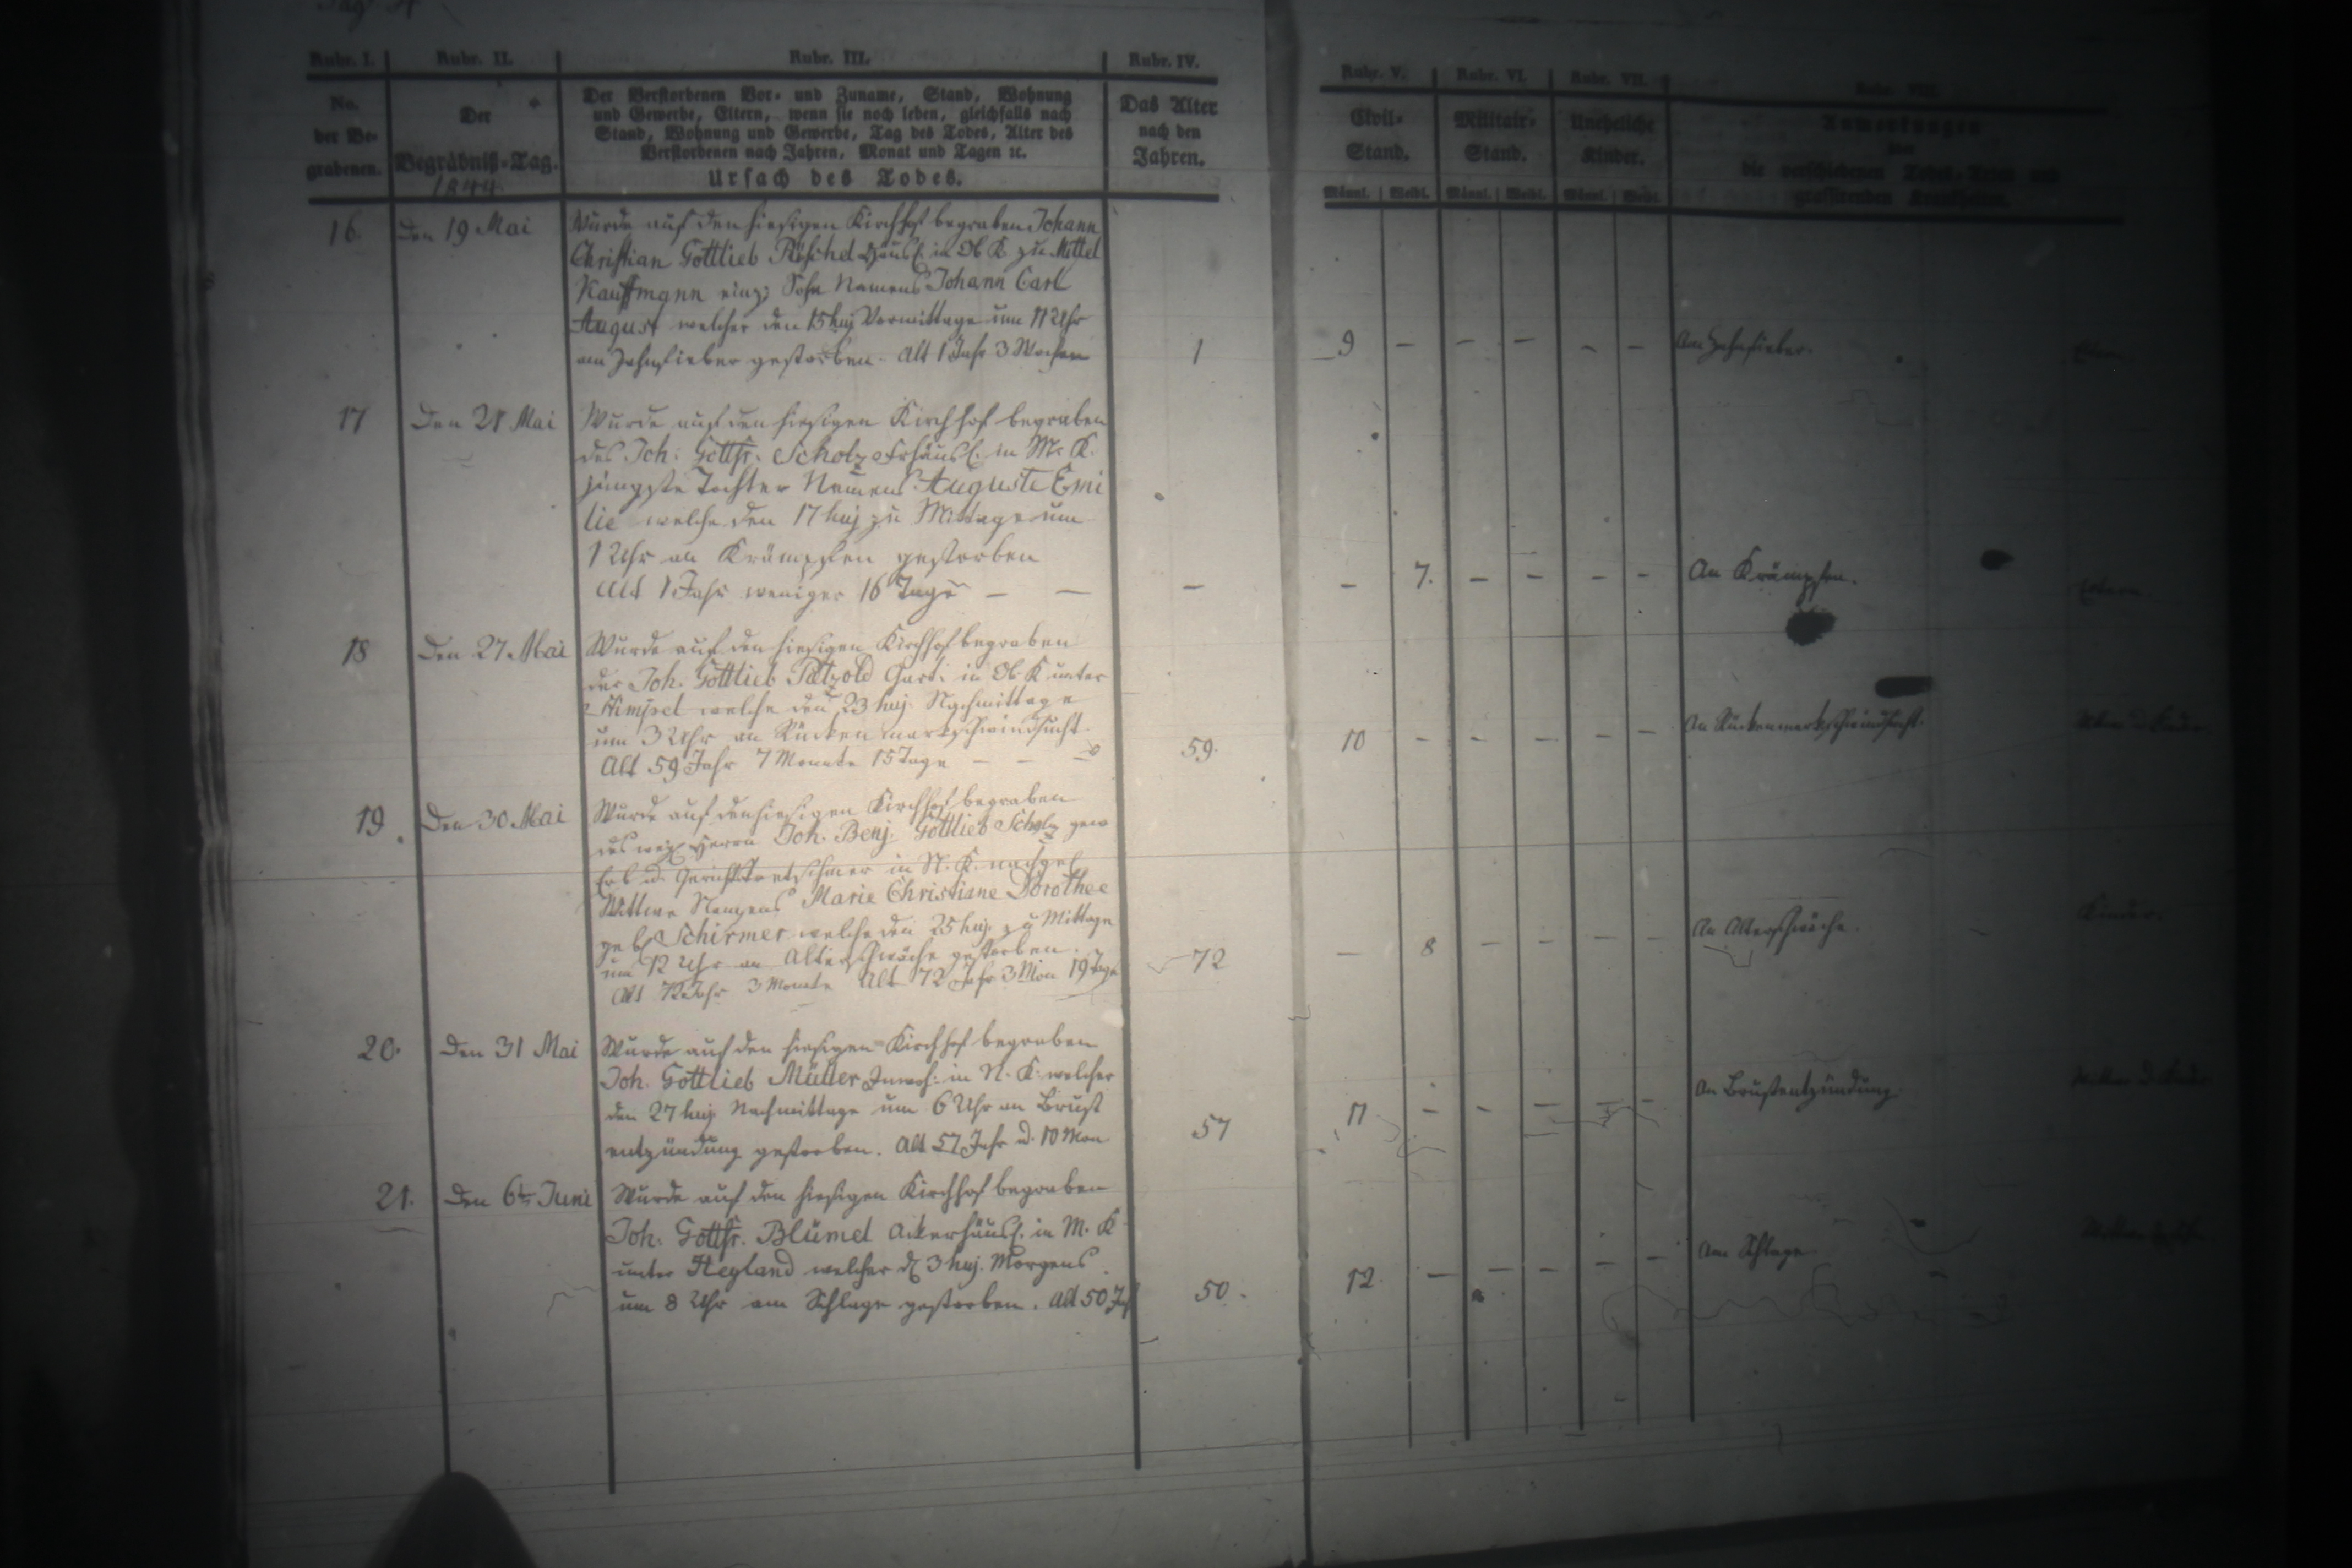 Rubr. I. Rubr. II. Rubr. III. Rubr. IV. Rubr. V. Rubr. VI. Rubr. VII. Rubr. VIII.
No. der Be- grabenen.
Der Begräbniß-Tag.
1844
Der Verstorbenen Vor- und Zuname, Stand, Wohnung
und Gewerbe, Eltern, wenn sie noch leben, gleichfalls nach
Stand, Wohnung und Gewerbe, Tag des Todes, Alter des
Verstorbenen nach Jahren, Monat und Tagen ꝛc.
Ursach des Todes.
Das Alter
nach den
Jahren.
Civil-
Stand.
Militair-
Stand.
Uneheliche
Kinder.
Anmerkungen
über
die verschiedenen Todes-Arten und
grassirenden Krankheiten.
Männl. Weibl. Männl. Weibl. Männl. Weibl.
16. Den 19 Mai Wurde auf den hiesigen Kirchhof begraben Johann
Christian Gottlieb Püschel Häusl. in Ob K. zu Mittel
Kauffmann einz: Sohn Namens Johann Carl
August welcher den 15 huj Vormittage um 11 Uhr
am Zahnfieber gestorben. Alt 1 Jahr 3 Wochen 1 9 – – – – – Am Zahnfieber. Eltern
17 Den 21 Mai Wurde auf den hiesigen Kirchhof begraben
des Joh: Gottfr. Scholz Häusl. in M. K.
jüngste Tochter Namens Auguste Emi
lie welche den 17 huj zu Mittage um
1 Uhr an Krämpfen gestorben
Alt 1 Jahr weniger 16 Tage – – – – 7. – – – – An Krämpfen. Eltern
18 Den 27. Mai Wurde auf den hiesigen Kirchhof begraben
der Joh. Gottlieb Pätzold Gärt. in Ob K unter
welche den 23 huj. Nachmittage
um 3 Uhr an Rückenmarkschwindsucht
Alt 59 Jahr 7 Monate 15 Tage – – 59. 10 – – – – – An Rückenmarkschwindsucht.
19 Den 30 Mai Wurde auf den hiesigen Kirchhof begraben
des Herrn Joh. Benj. Gottlieb Scholz gew
Erb u. Gerichtskretschmer in N. K. nachgel
Wittwe Namens Marie Christiane Dorothee
geb. Schirmer welche den 25 huj. zu Mittage
um 12 Uhr an Altersschwäche gestorben.
Alt 72 Jahr 3 Monate Alt 72 Jahr 3 Mon 19 Tage 72 – 8 – – – – An Altersschwäche. Kinder.
20. Den 31 Mai Wurde auf den hiesigen Kirchhof begraben
Joh. Gottlieb Müller Inwoh: in N. K. welcher
den 27 huj Nachmittage um 6 Uhr an Brust
entzündung gestorben. Alt 57 Jahr u. 10 Mon 57 11 – – – – – An Brustentzündung.
21. Den 6ten Juni Wurde auf den hiesigen Kirchhof begraben
Joh. Gottfr. Blümel Ackerhäusl. in M. K
unter Hegland welcher d. 3 huj. Morgens
um 8 Uhr am Schlage gestorben. Alt 50 Jah 50. 12. – – – – – Am Schlage